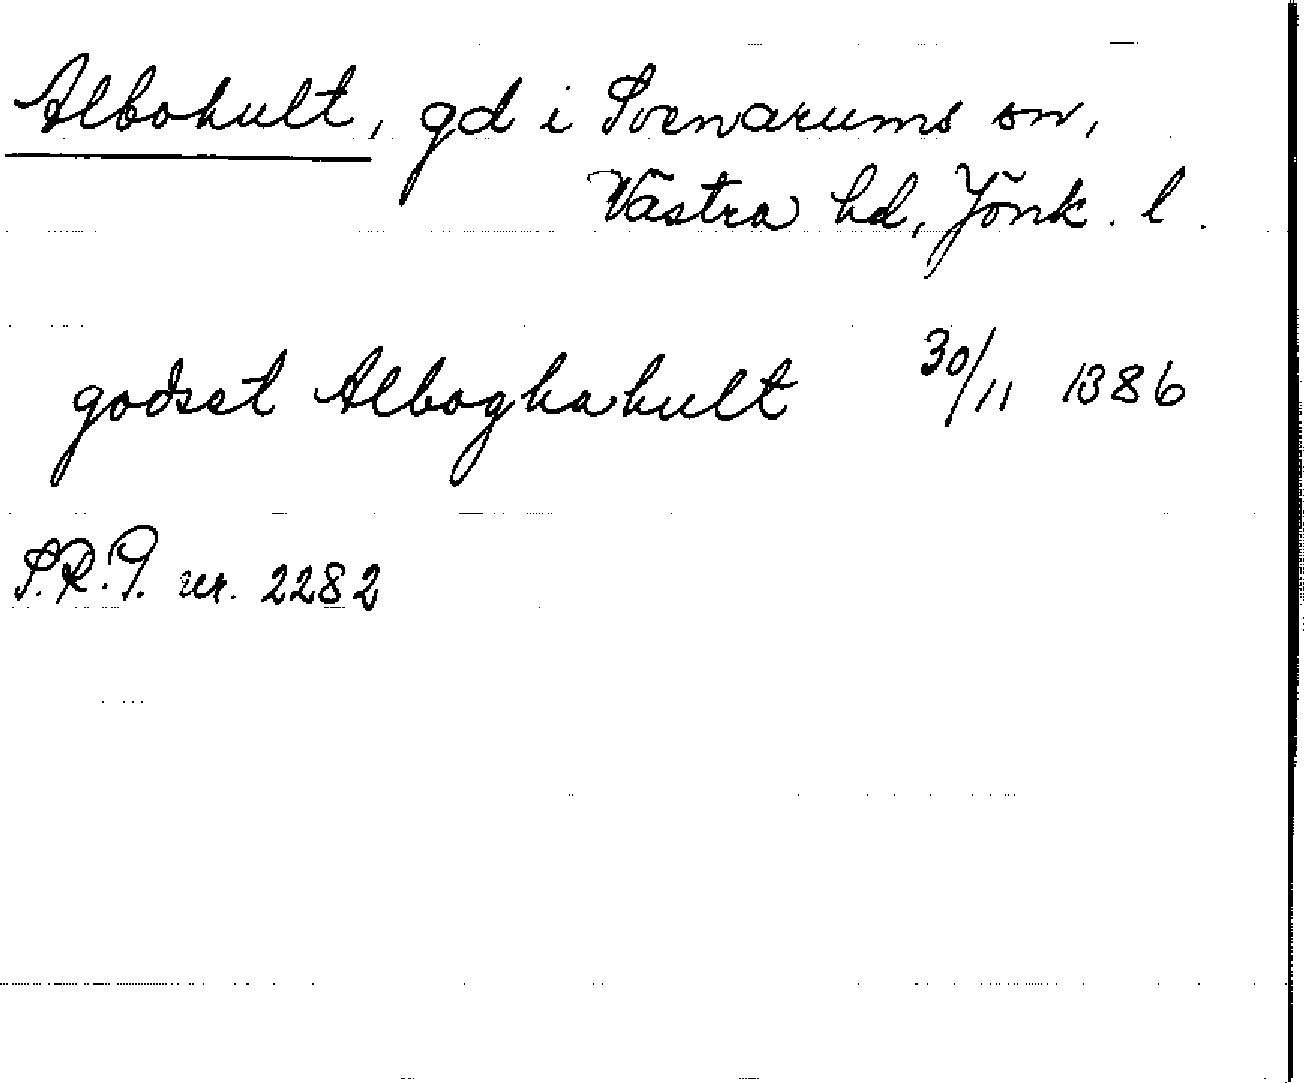 Albohult, gd i Svenarums sn,
Västra hd, Jönk. l.
godset Alboghahult 30/11 1386
S.R.P. nr. 2282